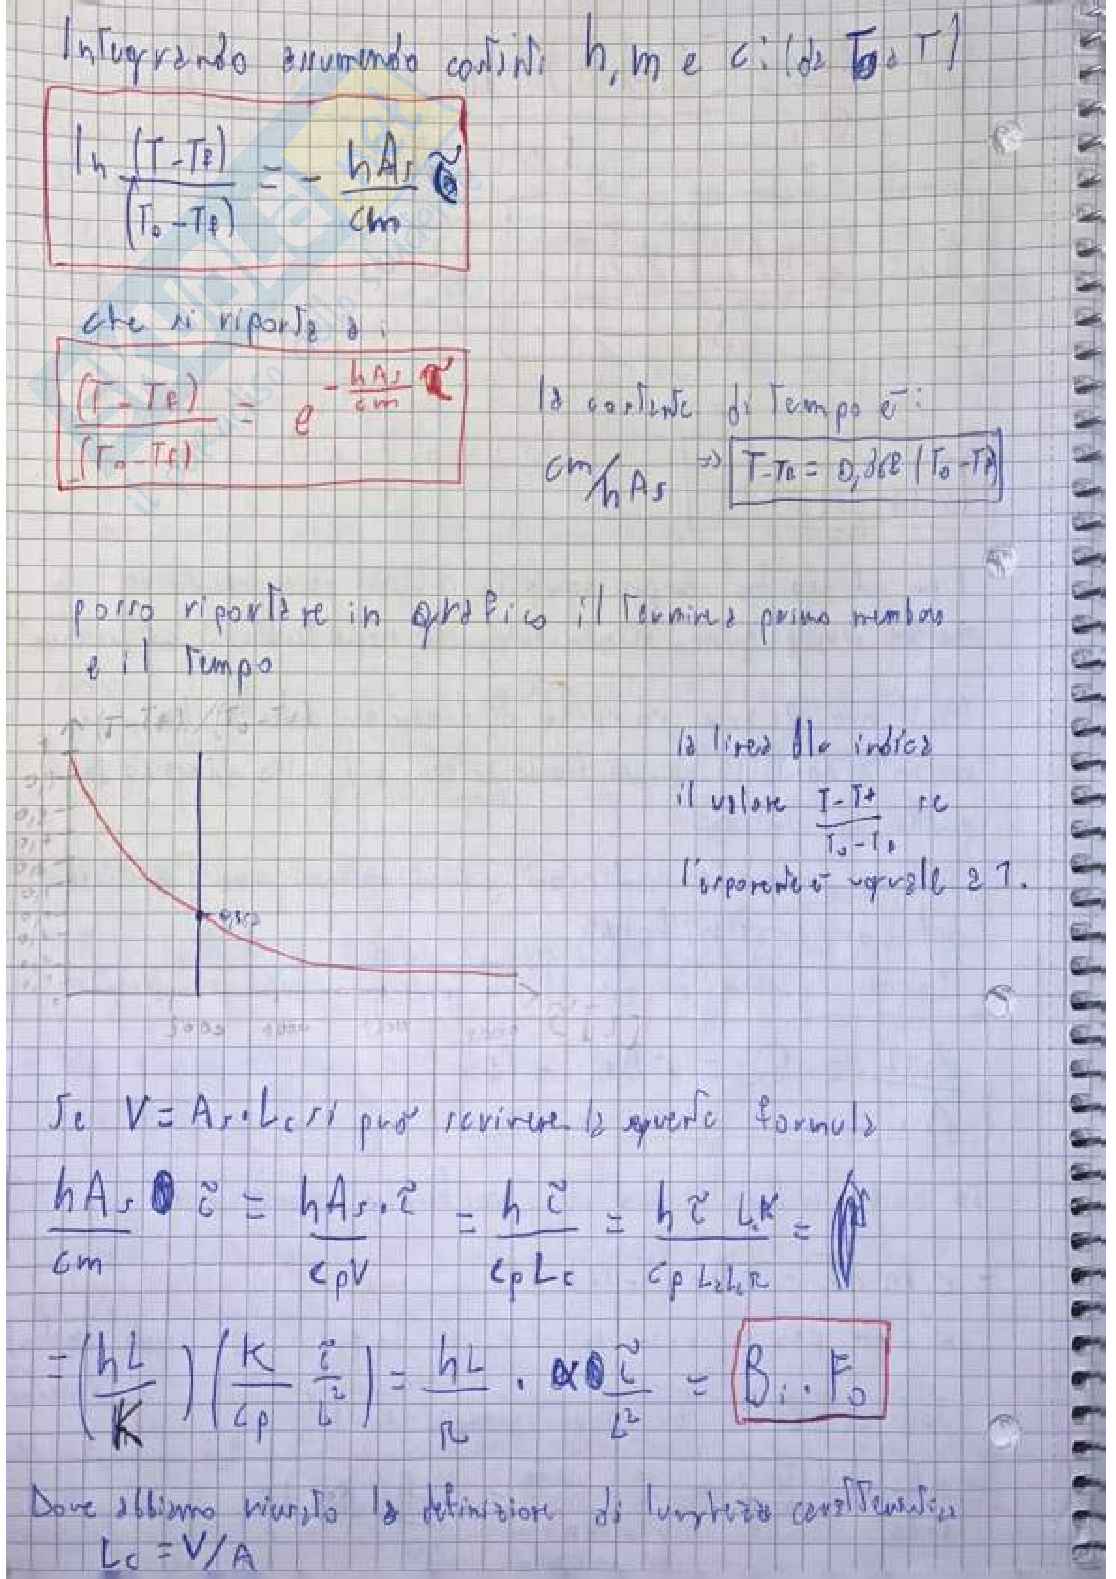 Integrando assumendo costanti h, m e c: (da T0 a T)
ln (T-Tf)/(T0-Tf) = - hAs/cm τ
che si riporta a:
(T-Tf)/(T0-Tf) = e^(-hAs/cm τ)
la costante di tempo è:
cm/hAs => T-Tf = 0,368 (T0-Tf)
posso riportare in grafico il termine a primo membro
e il tempo
(T-Tf)/(T0-Tf)
0,368
la linea blu indica
il valore T-Tf/T0-Tf se
l'esponente è uguale a 1.
Se V = As·Lc si può scrivere la seguente formula
hAs/cm τ = hAs·τ/cρV = hτ/cρLc = hτ LcK/cρLcLcK =
= (hL/K) (K/cρ τ/L²) = hL/K · α τ/L² = Bi·Fo
Dove abbiamo riusato la definizione di lunghezza caratteristica
Lc = V/A